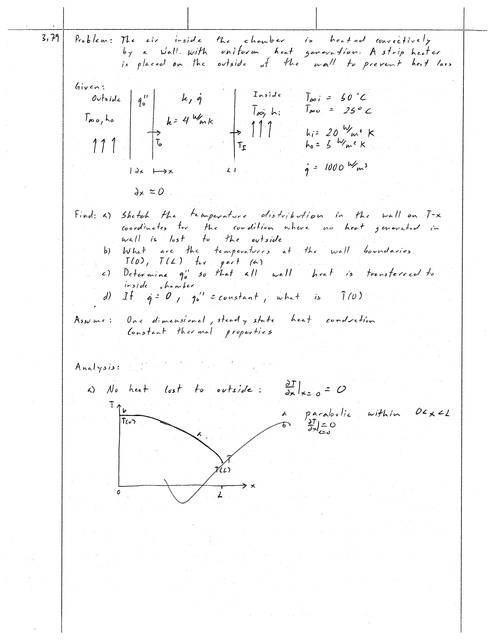 3.79 Problem: The air inside the chamber is heated convectively
by a wall with uniform heat generation. A strip heater
is placed on the outside of the wall to prevent heat loss
Given:
Outside q₀" k, q̇ Inside T∞i = 50°C
T∞o, ho k = 4 W/mK T∞i, hi T∞o = 25°C
↑↑↑ → To → TI ↑↑↑ hi = 20 W/m² K
ho = 5 W/m² K
|∂x ↦x L| q̇ = 1000 W/m³
∂x ≈ 0
Find: a) Sketch the temperature distribution in the wall on T-x
coordinates for the condition where no heat generated in
wall is lost to the outside
b) What are the temperatures at the wall boundaries
T(0), T(L) for part (a)
c) Determine q₀" so that all wall heat is transferred to
inside chamber
d) If q̇ = 0, q₀" = constant, what is T(0)
Assume: One dimensional, steady state heat conduction
Constant thermal properties
Analysis:
a) No heat lost to outside: ∂T/∂x|x=0 = 0
T
b a parabolic within 0<x<L
T(0) a b ∂T/∂x|x=0 = 0
T
T(L)
0 L x